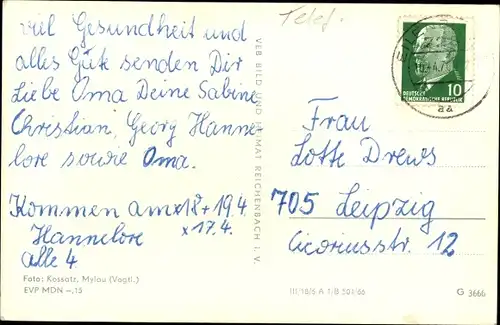 viel Gesundheit und
alles Gute senden Dir
Liebe Oma Deine Sabine
Christian, Georg Hanne-
lore sowie Oma.
Kommen am x18 + 19.4
Hannelore x 17.4.
alle 4
Foto: Kassatz, Mylau (Vogtl.)
EVP MDN -,15
VEB BILD UND HEIMAT REICHENBACH I. V.
Telef.
10
DEUTSCHE
DEMOKRATISCHE REPUBLIK
aa
Frau
Lotte Drews
705 Leipzig
Cicoriusstr. 12
III/18/6 A 1/B 501/66
G 3666